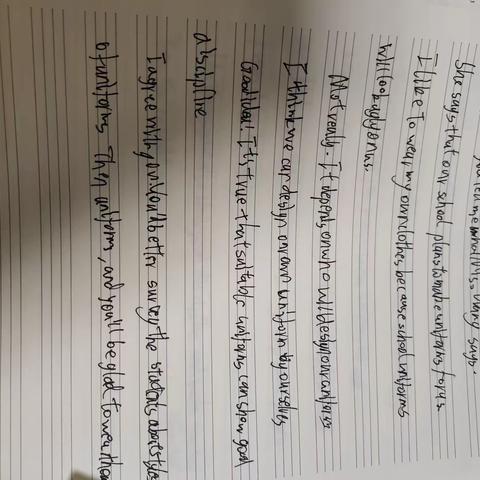 you tell me what Ms. Wang says.
She says that our school plans to make uniforms for us
I like to wear my own clothes, because school uniforms
will look ugly on us.
Not really. It depends on who will design our uniforms
I think we can design our own uniform by ourselves
Good idea! It is true that suitable uniforms can show good
discipline
I agree with you. You'd better survey the students about style
of uniforms. Then uniform, and you'll be glad to wear them